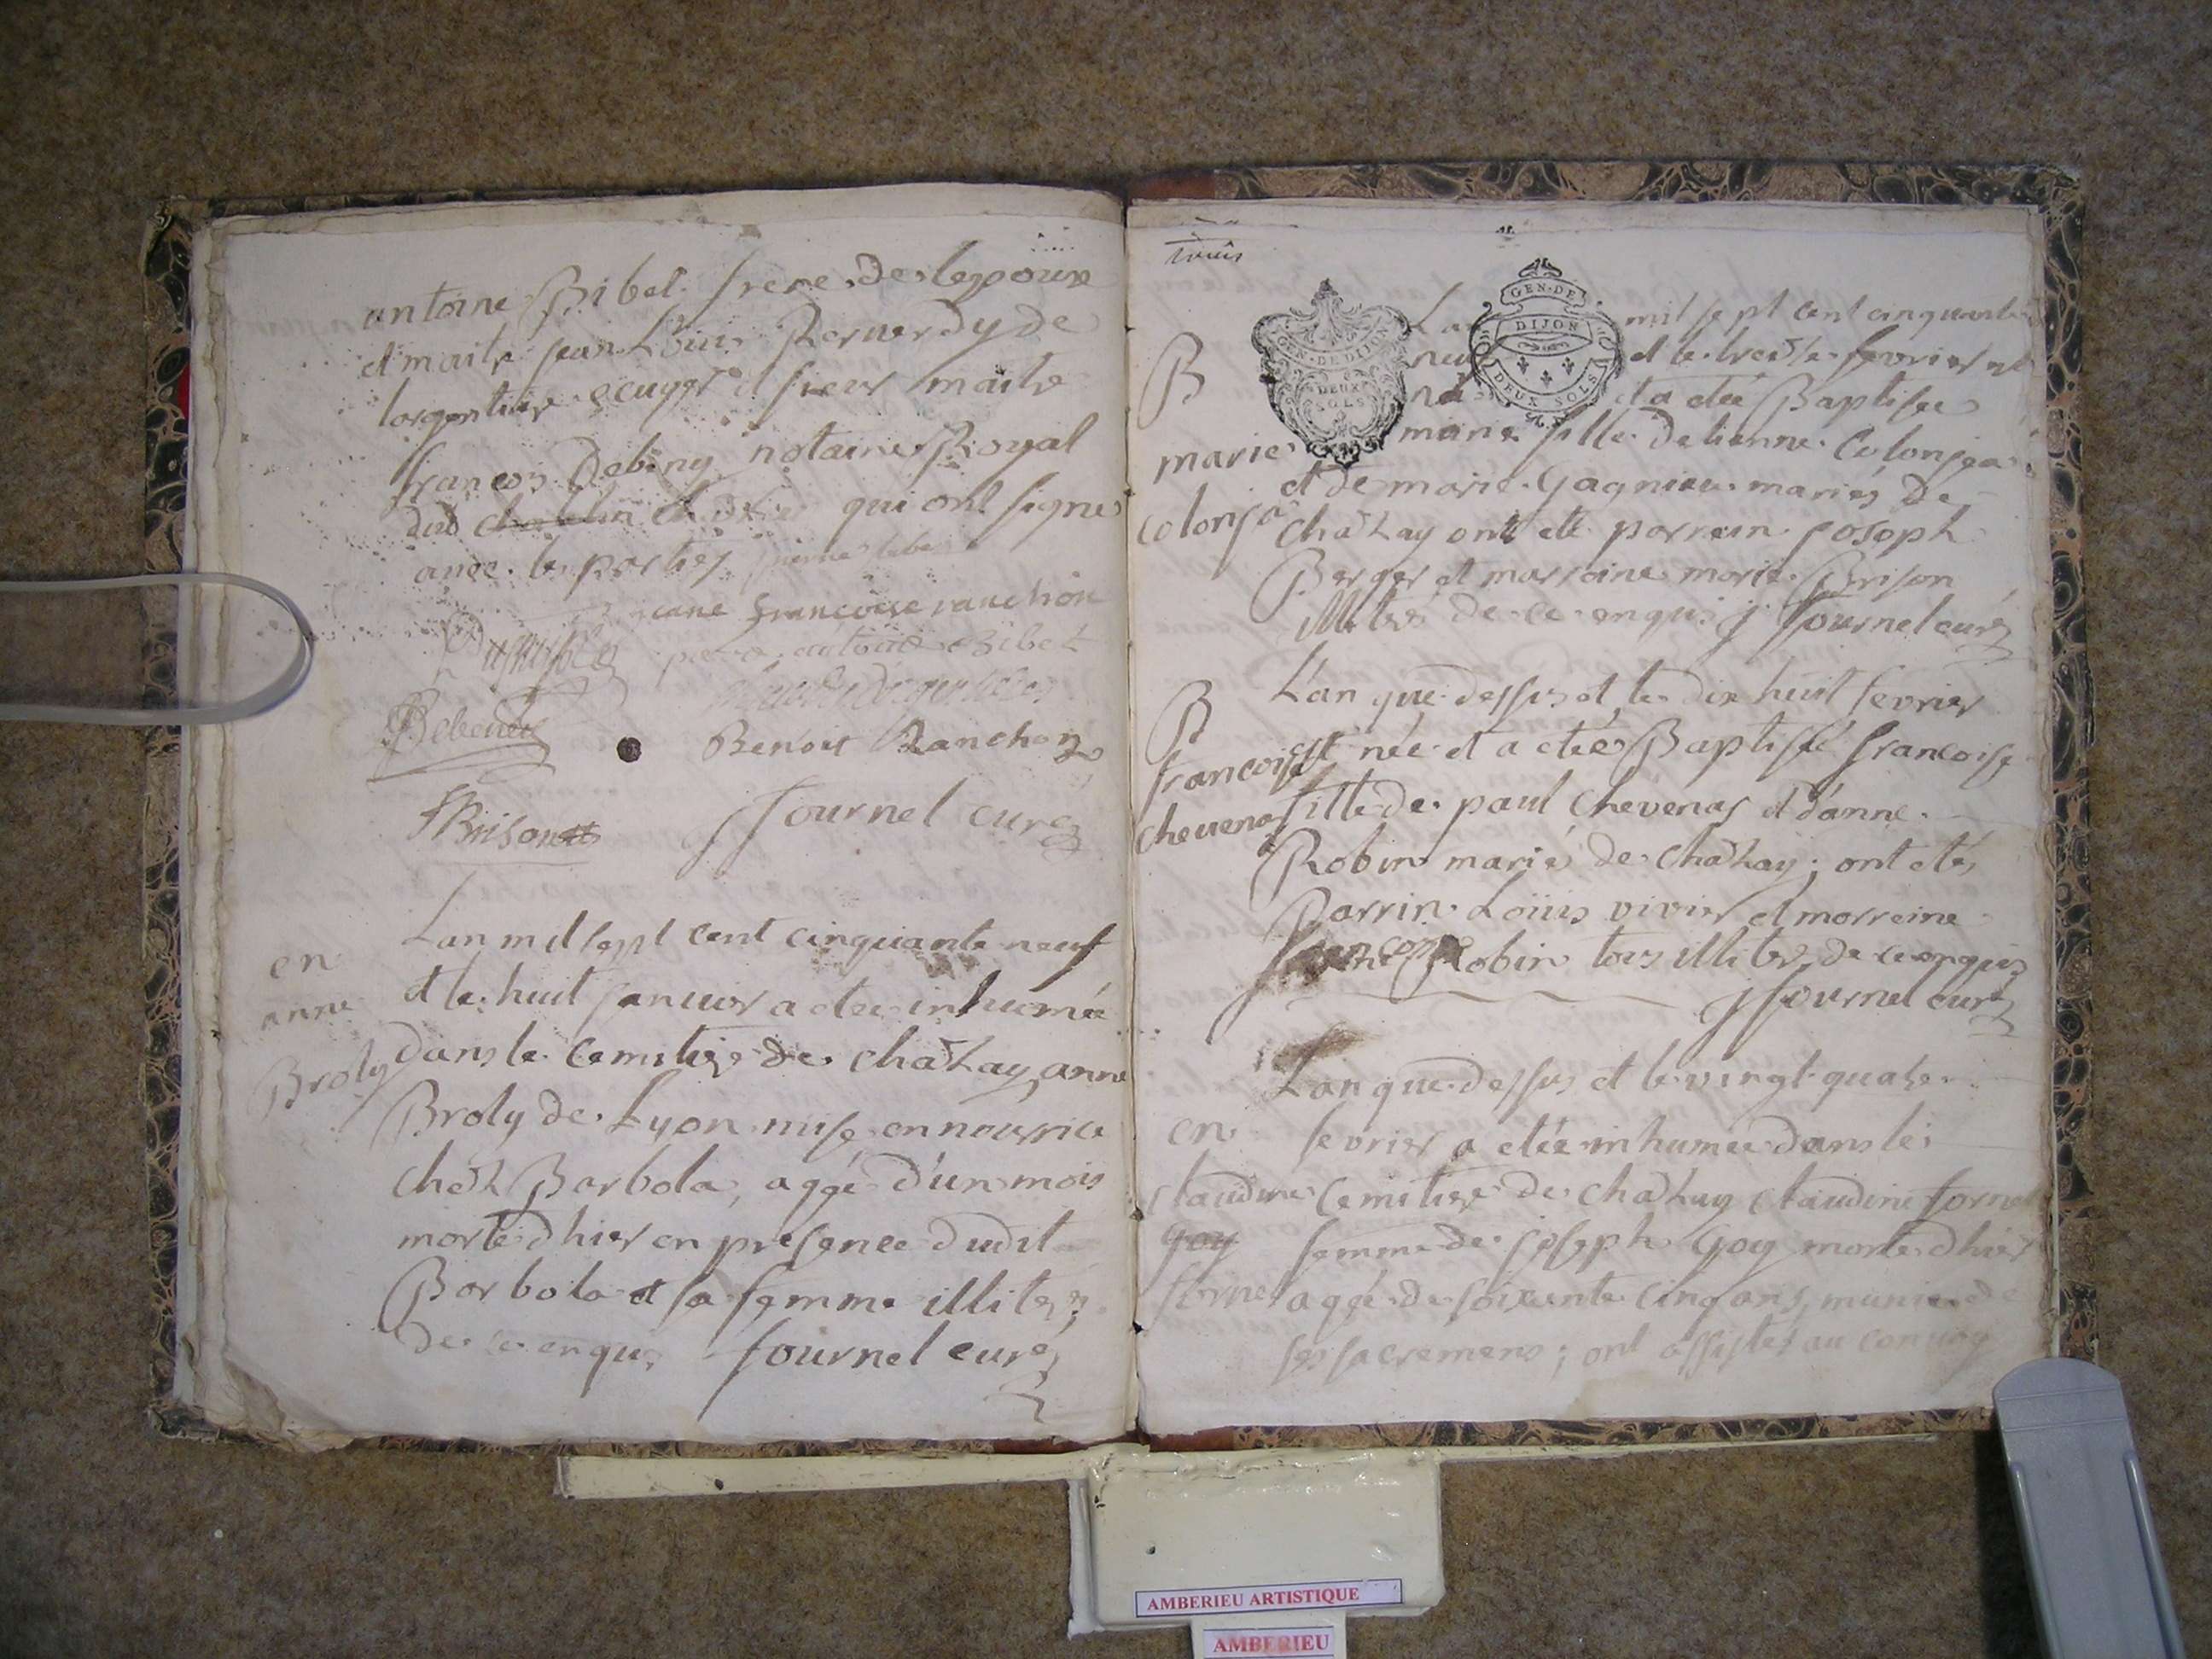 antoine Bibet frere de lepoux
et maitr jean Louis Rerverdy de
largentier ecuyer et sieur maitre
francois Debeny notaire Royal
dud qui ont signes
avec les parties
jeane francoise ranchon
antoine Bibet
Benoit Ranchon
Brison
j fournel curé
en
anne
Broly
Lan mil sept cent cinquante neuf
et le huit janvier a etee inhumée
dans le cemitiere de chatlay anne
Broly de Lyon mise en nourrice
chez Barbola, aggé d'un mois
morte d hier en presence dudit
Barbola et sa femme illites
de ce enquis fournel curé
trois
GEN. DE DIJON
DEUX
SOLS
GEN. DE
DIJON
DEUX SOLS
B
marie
colonja
Lan mil sept cent cinquante
neuf et le treize fevrier
née et a eteé Baptisee
marie fille detienne Colonja
et de marie Gagnieu mariés de
chatlay ont eté parrein joseph
Berger et marreine marie Brison
illites de ce enquis j fournel curé
B
francoise
chevenas
L'an que dessus et le dix huit fevrier
est née et a eteé Baptisée francoise
fille de paul chevenas et d'anne
Robin mariés de chatlay; ont etés
Parrin Loüis vivier et marreine
francoise Robin tous illites de ce enquis
j fournel curé
en
claudine
Goy
fornel
Lan que dessus et le vingt quatre
fevrier a eteé inhumee dans le
Cemitiere de chatlay claudine fornel
femme de joseph Goy morte d hier
aggé de soixante cinq ans, munie de
ses sacremens; ont assistes au convoy
AMBERIEU ARTISTIQUE
AMBERIEU